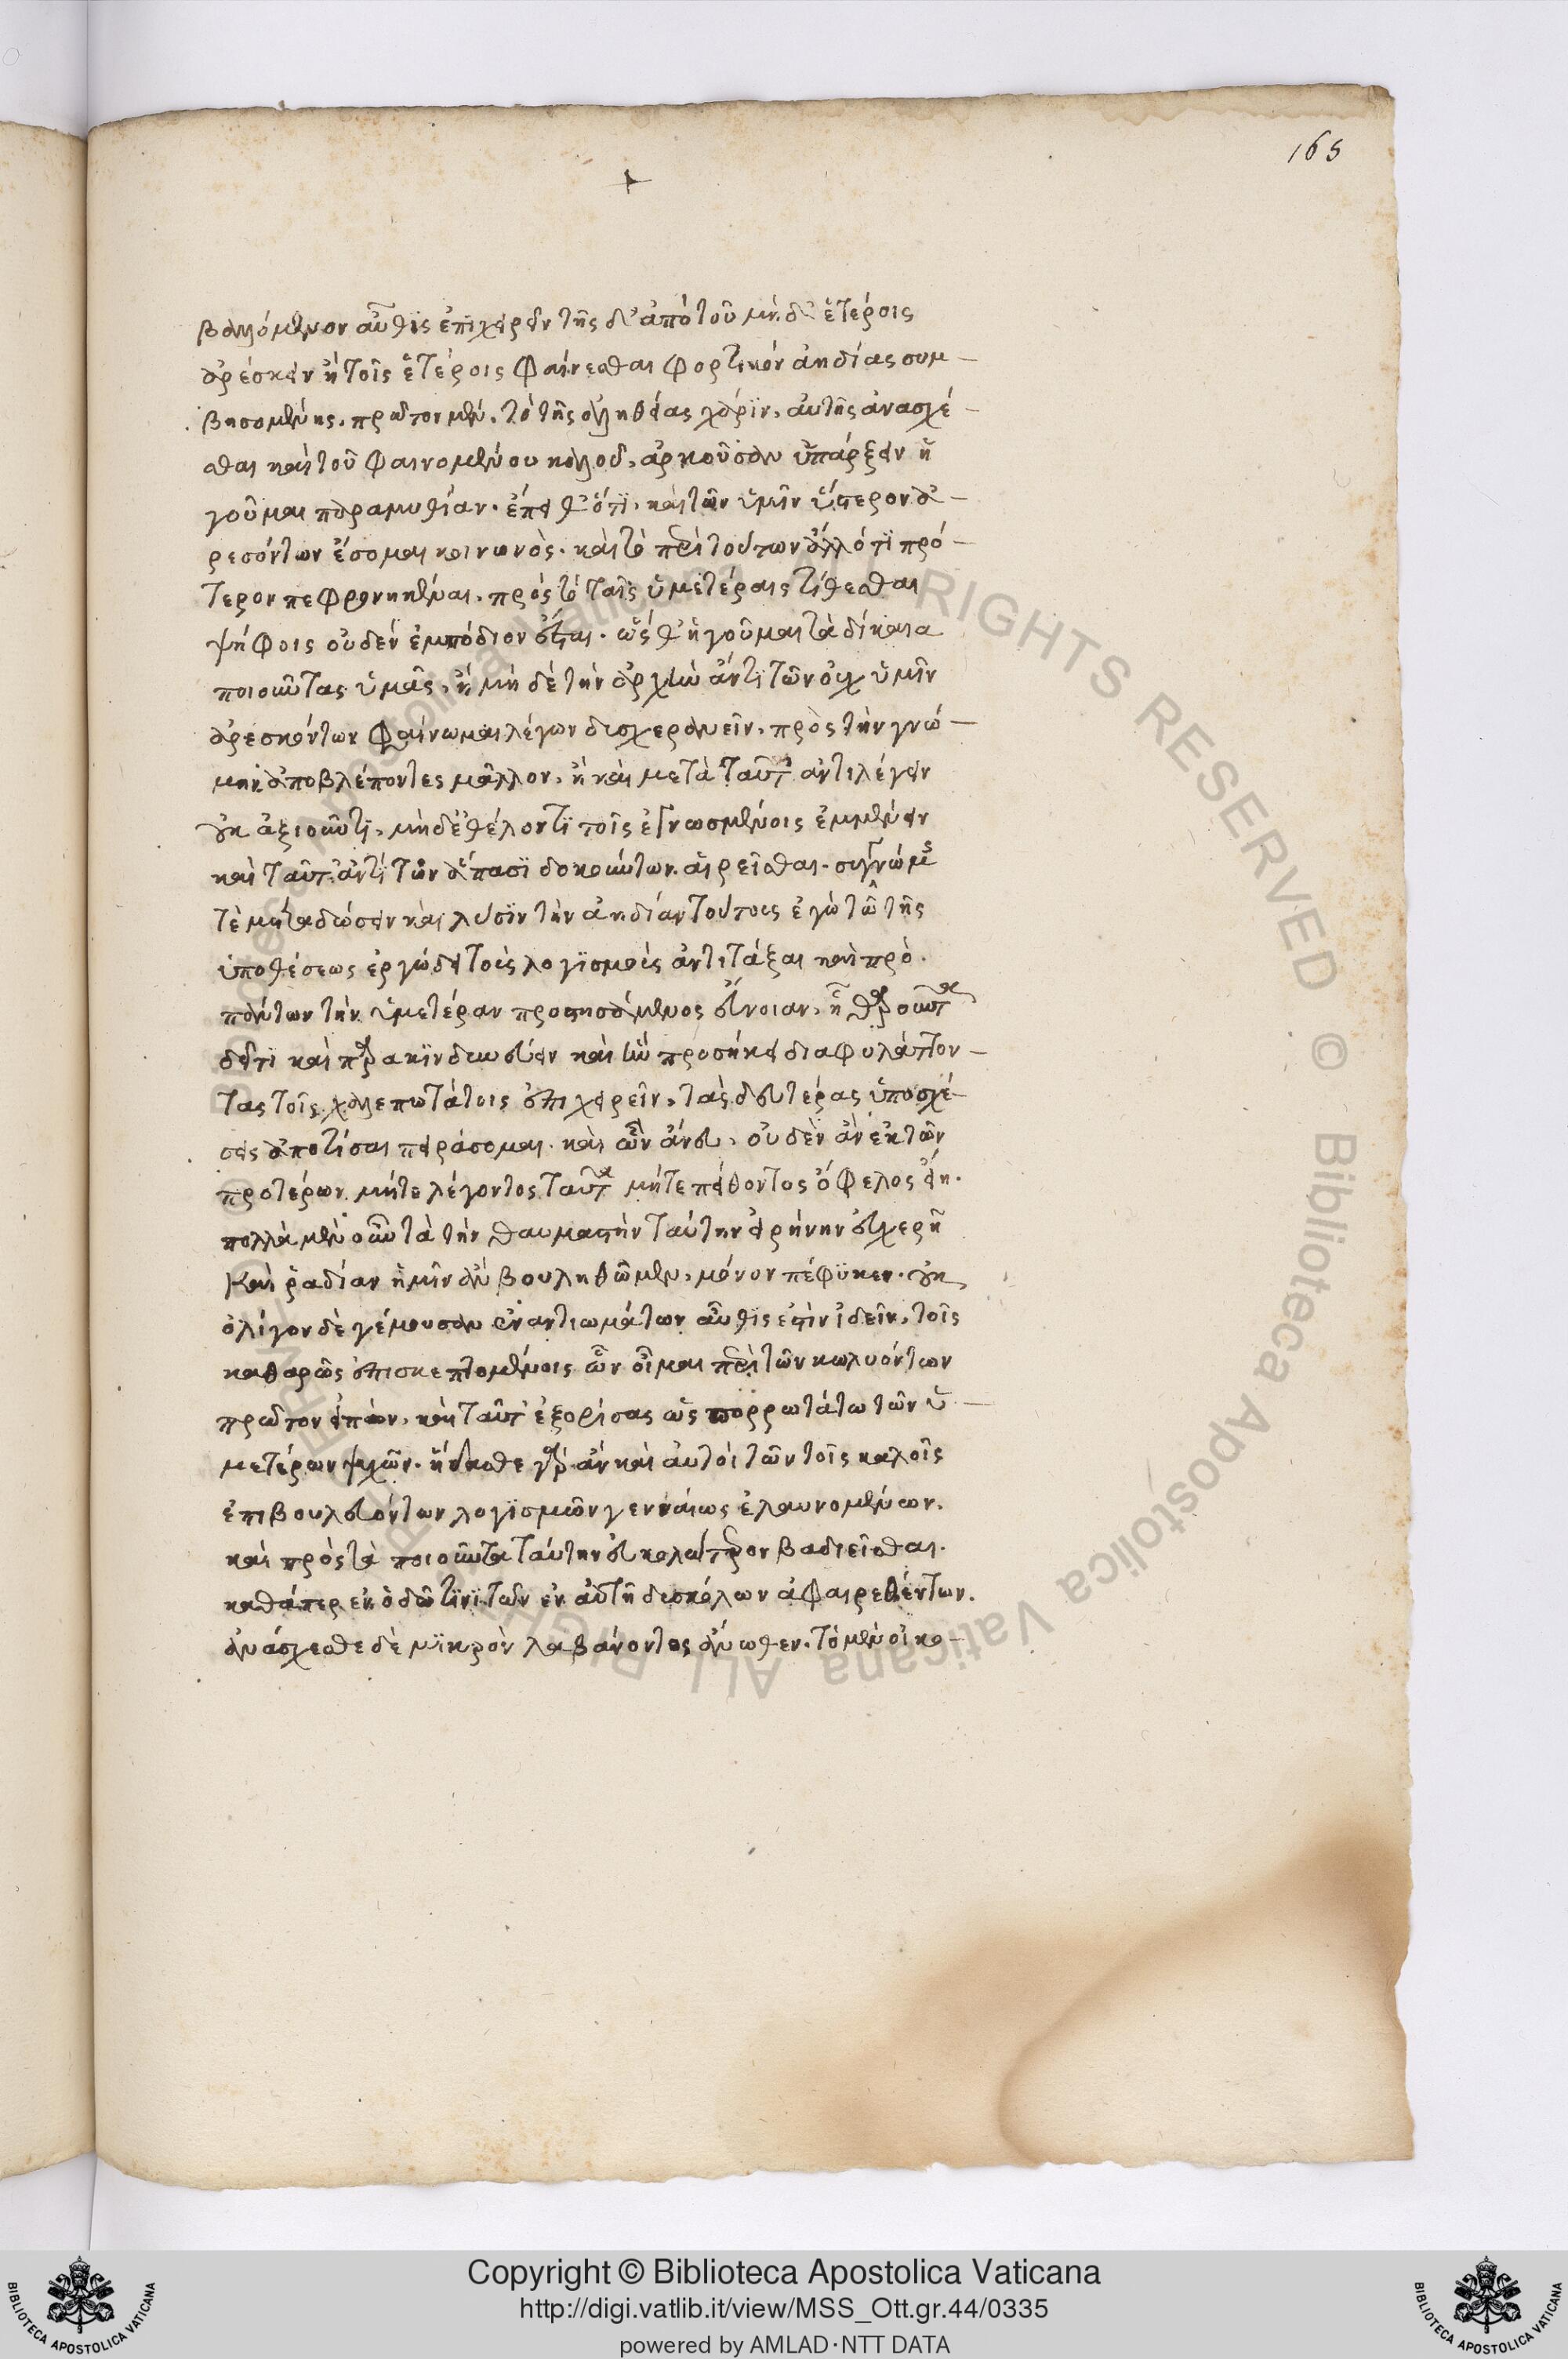 165
βουλόμενον αὖθις ἐπιχειρεῖν τῆς δ' ἀπὸ τοῦ μηδ' ἑτέροις
ἀρέσκειν ἢ τοῖς ἑτέροις φαίνεσθαι φορτικὸν ἀηδίας συμ-
βησομένης. πρῶτον μὲν, τὸ τῆς ἀληθείας χάριν, αὐτῆς ἀνασχέ-
σθαι καὶ τοῦ φαινομένου καλοῦ, ἀρκοῦσαν ὑπάρξειν ἡ
γοῦμαι παραμυθίαν. ἔπειθ' ὅτι, καὶ τῶν ὑμῖν ὕστερον ἀ-
ρεσόντων ἔσομαι κοινωνὸς. καὶ τὸ περὶ τούτων ἄλλό τι πρό-
τερον πεφρονηκέναι, πρὸς τὸ ταῖς ὑμετέραις τίθεσθαι
ψήφοις οὐδὲν ἐμπόδιον ἔσται. ὥς θ' ἡγοῦμαι τὰ δίκαια
ποιοῦντας ὑμᾶς, ἢ μὴ δὲ τὴν ἀρχὴν ἀντὶ τῶν οὐχ ὑμῖν
ἀρεσκόντων φαίνωμαι λέγων δυσχεραίνειν, πρὸς τὴν γνώ-
μην ἀποβλέποντες μᾶλλον, ἢ καὶ μετὰ ταῦτ' ἀντιλέγειν
οὐκ ἀξιοῦντι, μὴ δ' ἐθέλοντι τοῖς ἐγνωσμένοις ἐμμένειν
καὶ ταῦτ' ἀντὶ τῶν ἅπασι δοκούντων αἱρεῖσθαι. συγγνώμης
τὲ μεταδώσειν καὶ λύσιν τὴν ἀηδίαν τούτοις ἐγὼ τῶ τῆς
ὑποθέσεως ἐργώδει τοὺς λογισμοὺς ἀντιτάξαι καὶ πρὸ
πάντων τὴν ὑμετέραν προστησάμενος εὔνοιαν, ᾗ
καὶ παρακινδυνεύειν καὶ προσήκει διαφυλάττον-
τας τοῖς χαλεπωτάτοις ἐπιχειρεῖν, τὰς δευτέρας ὑποσχέ-
σεις ἀποτίσαι πειράσομαι. καὶ ὧν ἄνευ, οὐδὲν ἂν ἐκ τῶν
προτέρων μήτε λέγοντος ταῦτα μήτε πείθοντος ὄφελος εἴη.
πολλὰ μὲν οὖν τὰ τὴν θαυμαστὴν ταύτην εἰρήνην εὐχερῆ
καὶ ῥαδίαν ἡμῖν ἂν βουληθῶμεν, μόνον πέφυκεν. οὐκ
ὀλίγον δὲ γέμουσαν ἐναντιωμάτων αὖθις ἐστὶν ἰδεῖν, τοῖς
καθαρῶς ἐπισκεπτομένοις ὧν οἶμαι περὶ τῶν κωλυόντων
πρῶτον εἰπὼν, καὶ ταῦτ' ἐξορίσας ὡς πορρωτάτω τῶν ὑ-
μετέρων ψυχῶν. γὰρ ἂν καὶ αὐτοὶ τῶν τοῖς καλοῖς
ἐπιβουλευόντων λογισμῶν γενναίως ἐλαυνομένων.
καὶ πρὸς τὰ ποιοῦντα ταύτην εὐκολώτερον βαδιεῖσθαι.
καθάπερ ἐν ὁδῶ τινὶ τῶν ἐν αὐτῆ δυσκόλων ἀφαιρεθέντων.
ἀνάσχεσθε δὲ μικρὸν λαβάνοντος ἄνωθεν. τὸ μὲν οἰκο-
Copyright © Biblioteca Apostolica Vaticana
http://digi.vatlib.it/view/MSS_Ott.gr.44/0335
powered by AMLAD·NTT DATA